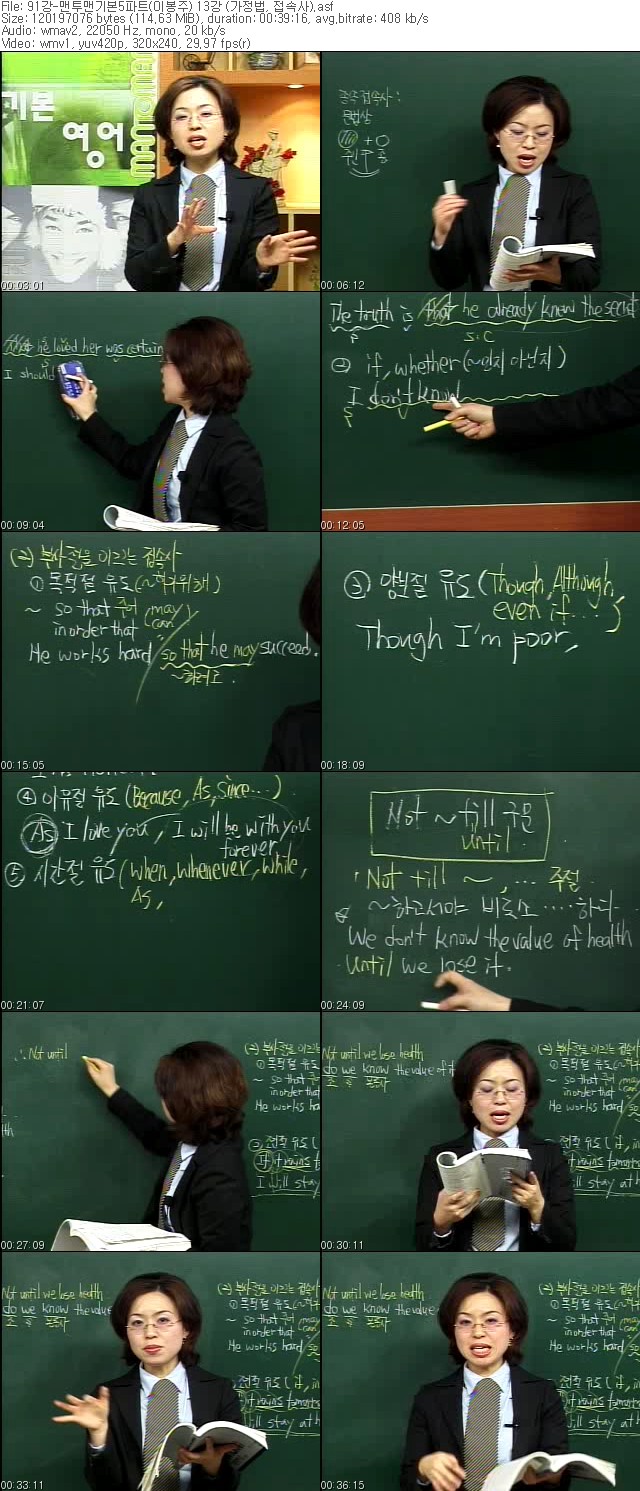 File: 91강-맨투맨기본5파트(이봉주) 13강 (가정법, 접속사).asf
Size: 120197076 bytes (114,63 MiB), duration: 00:39:16, avg,bitrate: 408 kb/s
Audio: wmav2, 22050 Hz, mono, 20 kb/s
Video: wmv1, yuv420p, 320x240, 29,97 fps(r)
기본
영어
MANTOMAN
00:03:01
종속접속사:
문법상
00:06:12
That he loved her was certain
I should
00:09:04
The truth is that he already knew the secret
S.C
② if, whether (~인지 아닌지)
I don't know
S V
00:12:05
(2) 부사절을 이끄는 접속사
① 목적절 유도 (~하기위해)
~ so that 주어 (may
can)
in order that
He works hard so that he may succeed.
~하려고.
00:15:05
③ 양보절 유도 (Though, Although,
even if...)
Though I'm poor,
00:18:09
④ 이유절 유도 (Because, As, Since...)
As I love you, I will be with you
forever
⑤ 시간절 유도 (when, whenever, while,
As,
00:21:07
Not ~ till 구문
until
Not till ~, ... 주절
~하고서야 비로소 ....하다
We don't know the value of health
until we lose it.
00:24:09
∴ Not until
th
(2) 부사절을 이끄는
① 목적절 유도
~ so that 주어
in order that
He works ha
If it rains
I will stay
00:27:09
Not until we lose health
do we know the value of it
조 주 본동사
(2) 부사절을 이끄는 접
① 목적절 유도
~ so that 주어 may
in order that
He works hard
stay at
00:30:11
Not until we lose health
do we know the value
조 주 본동사
(2) 부사절을 이끄는 접속사
① 목적절 유도
~ so that 주어 may
can
in order that
He works hard so
rains tomorro
will stay at h
00:33:11
Not until we lose health
do we know the value
조 주 본동사
(2) 부사절을 이끄는 접속사
① 목적절 유도
~ so that 주어 may
can
in order that
He works hard so
rains tomorro
will stay at h
00:36:15